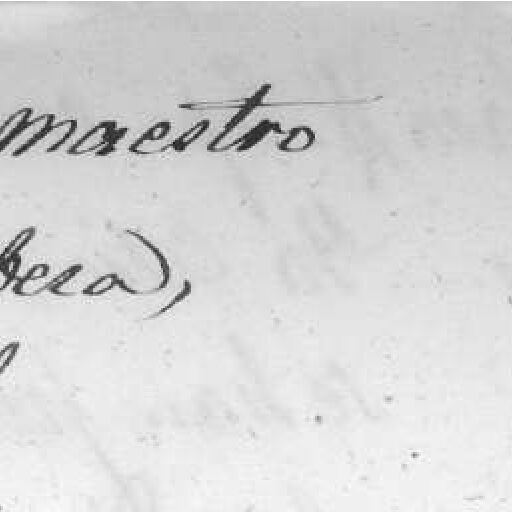 maestro
bera),